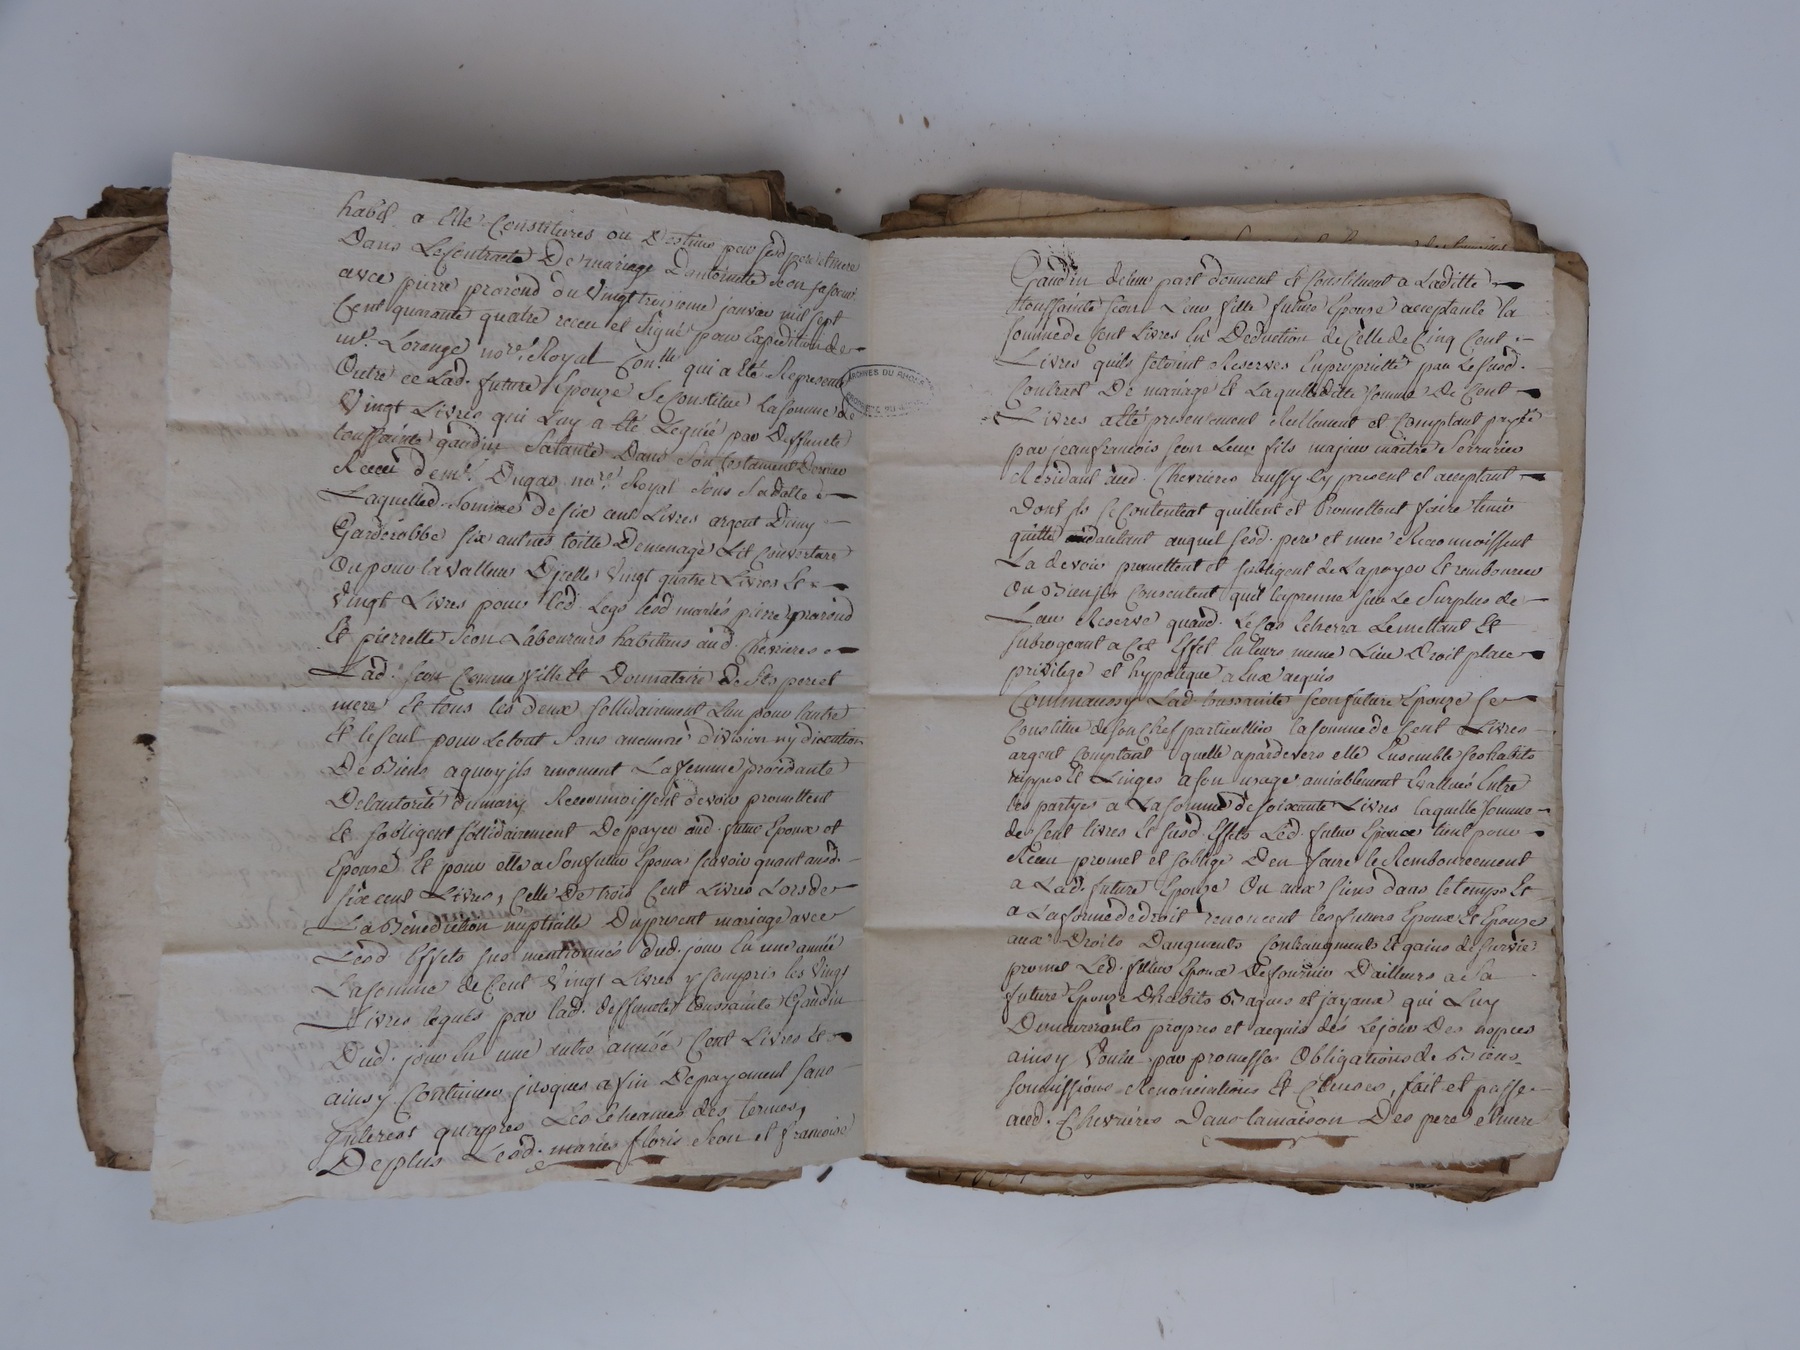 habil a Elle Constitués ou Destinés par sesd pere et mere
Dans Le contract De mariage Dantoinette Seon sa soeur
avec pierre prarond du Vingt troisieme janvier mil sept
Cent quarante quatre receu et signé pour Expedition de
me. Lorange nore. Royal Conlle. qui a eté Representé
Outre ce Lad. future Epouze Se Constitue la somme de
Vingt Livres qui Luy a eté Leguée par Deffuncte
toussainte gaudin Sa tante Dans Son testament Dernier
Receu de me. Dugas nore. Royal Sous Sa datte
Laquelled. Somme de six cent Livres argent Demy
Garderobbe six autres toille Demenage Lit Couverture
Ou pour la valleur Dicelle Vingt quatre Livres Et
Vingt Livres pour led. Legs lesd mariés pierre prarond
Et pierrette Seon Laboureurs habitans aud. Chevrieres
Lad. Seon Comme fille Et Donnataire De Ses pere et
mere Et tous les deux sollidairement Lun pour lautre
Et le seul pour Le tout Sans aucune division ny discution
De Biens a quoy ils renoncent La femme procedante
De lautorité du mary Reconnoissent devoir promettent
Et sobligent sollidairement De payer aud. futur Epoux et
Epouse Et pour elle a Son futur Epoux scavoir quant ausd.
six cent Livres, Celle De trois Cent Livres Lors de
La Bénédiction nuptialle Du present mariage avec
Lesd Effets sus mentionnés dud. jour En une année
La somme de Cent Vingt Livres y Compris les Vingt
Livres legués par lad. deffuncte toussainte Gaudin
Dud. jour En une autre année Cent Livres Et
ainsy Continuer jusques a fin De payement sans
Interest qu'apres Les Echeances des termes,
De plus Lesd. mariés floris Seon et francoise
ARCHIVES DU RHONE
Gaudin de leur part donnent et Constituent a Laditte
toussainte Seon Leur fille future Epouze acceptante la
somme de Cent Livres En Deduction de Celle de Cinq Cent
Livres quils setoient Reservés En proprietté par Le susd.
Contract De mariage Et Laquelleditte somme De Cent
Livres a eté presentement Réellement et Comptant payée
par jean francois Seon Leur fils majeur maitre Serrurier
Residant aud. Chevrieres aussy Cy present et acceptant
Dont ils Se Contentent quittent et Promettent faire tenir
quitte dautant auquel sesd. pere et mere Reconnoissent
La devoir promettent et sobligent de La payer Et rembourcer
Ou Bien ils Consentent quil la prenne sur Le Surplus de
Leur Reserve quand. Le Cas Echerra Le mettant Et
subrogeant a Cet Effet En leurs meme Lieu Droit place
privilege et hypotéque a Eux acquis
Comme aussy Lad. toussainte Seon future Epouze se
Constitue de son Chef particullier la somme de Cent Livres
argent Comptant quelle a pardevers elle Ensemble Ses habits
nippes Et Linges a son usage amiablement Evallués Entre
les partyes a La somme de soixante Livres laquelle somme
de Cent livres Et susd. Effets Led. futur Epoux tient pour
Receu promet et soblige D'en faire le Rembourcement
a Lad. future Epouze Ou aux siens dans le temps Et
a La forme de droit renoncent les futurs Epoux Et Epouze
aux Droits Daugments Contraugments Et gains de survie
promet Led. futur Epoux De fournir D'ailleurs a la
future Epouze D'habits Bagues et joyaux qui Luy
Demeureronts propres et acquis dés Le jour Des nopces
ainsy Voulu par promesses Obligations de Biens
soumissions Renonciations Et Clauses, fait et passé
aud. Chevrieres Dans la maison Des pere et mere